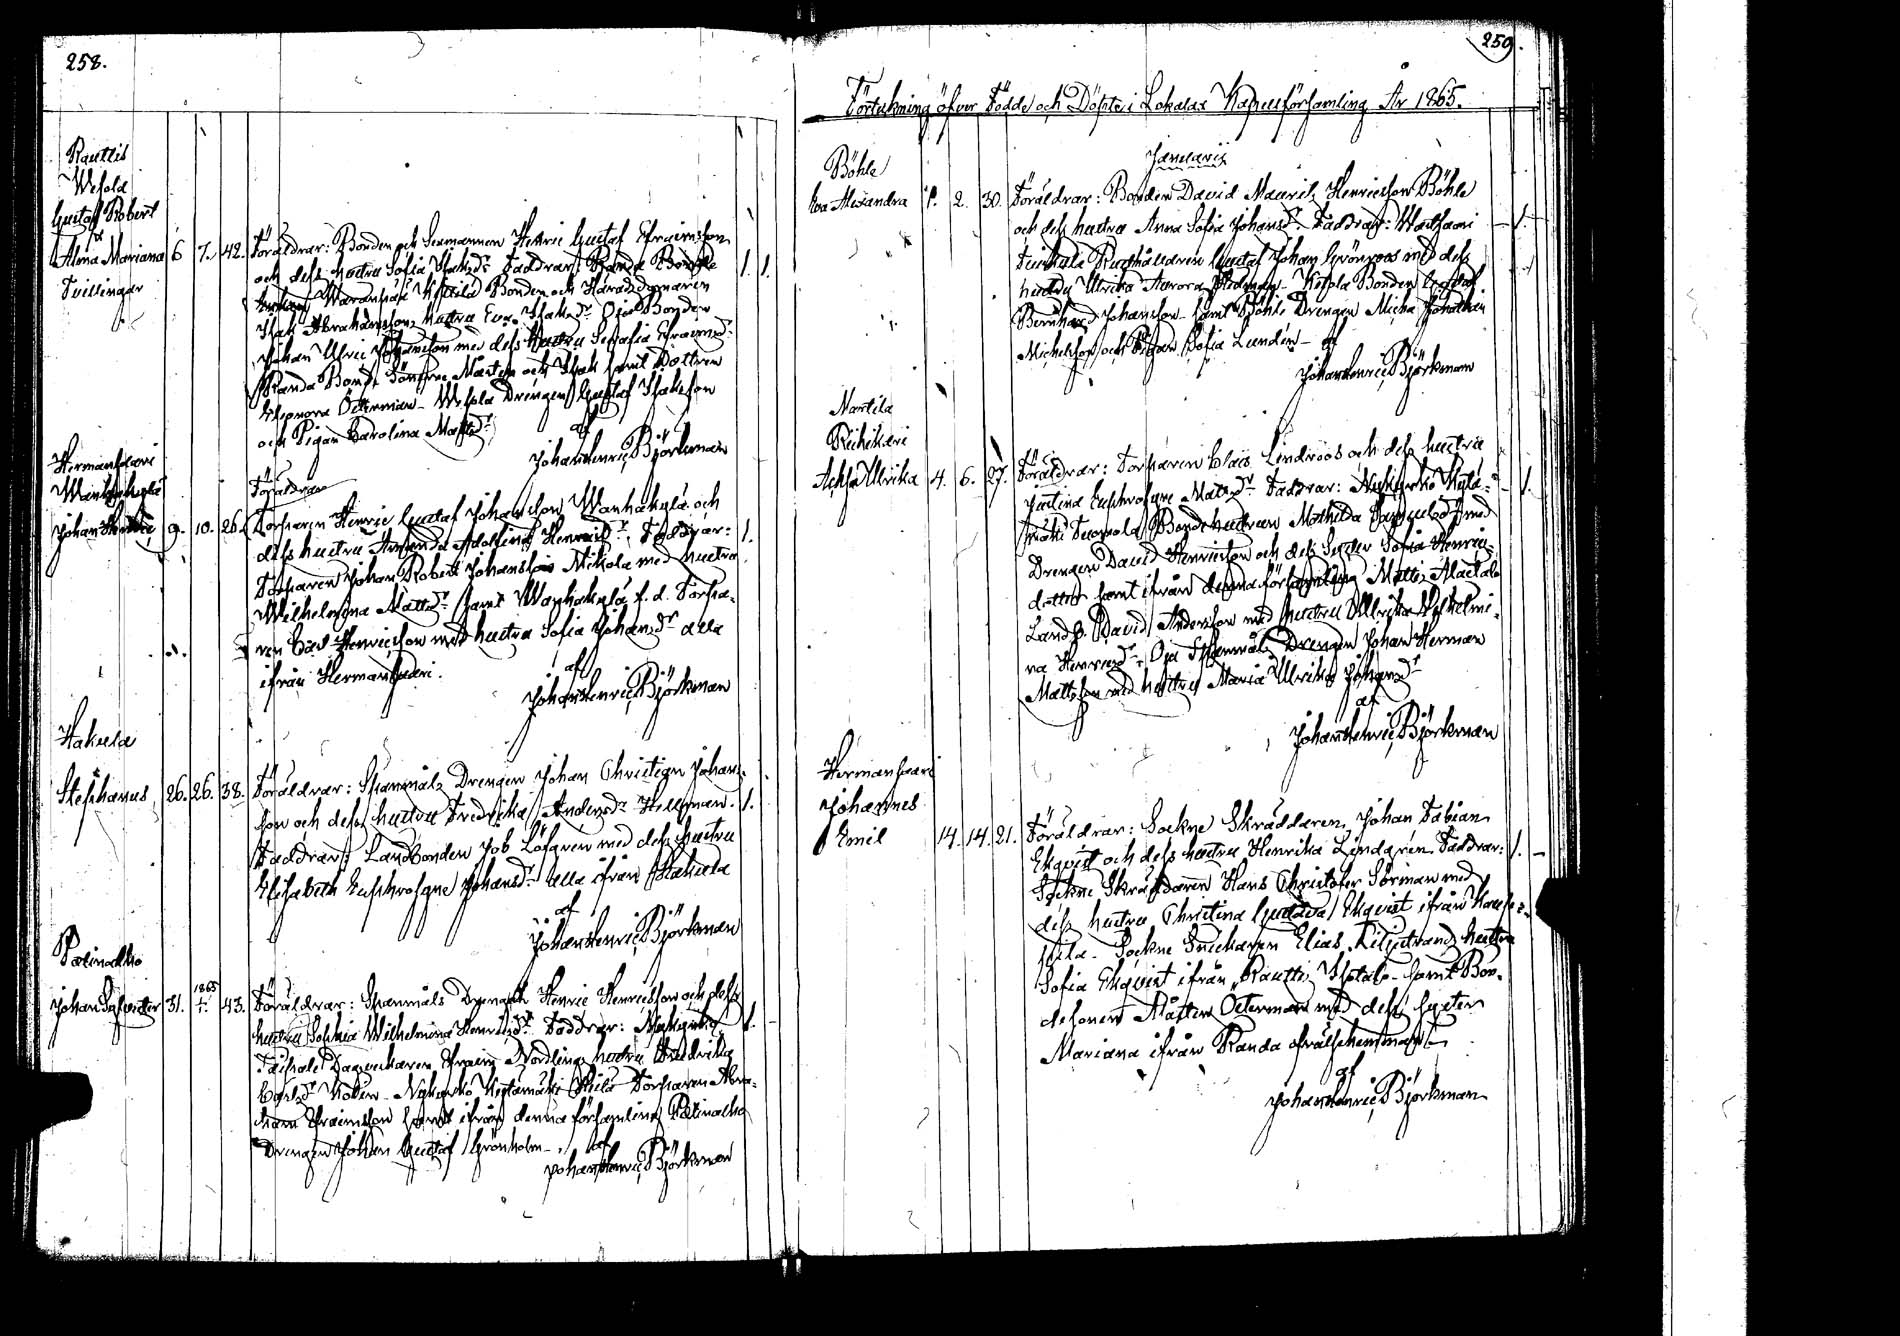 258.
Rautlis
Wesola
Gustaf Robert
Alma Mariana 6 7. 42. Föräldrar: Bonden och Sexmannen Henric Gustaf Efraimsson
Tvillingar
och dess hustru Sofia Isaksdr Faddrar: Randa Bonde
Bonden och Häradsdomaren
Isak Abrahamssons hustru Eva Isaksdr Oja Bonden
Johan Ulric Johansson med dess hustru Serafia Efraimsdr
Randa Bonde Sönerne Mårten och Isak samt Dottren
Eleonora Österman - Wesola Drengen Gustaf Isaksson
och Pigan Carolina Mattsdr
af
Johan Henric Björkman
Hermansaari
Wanhakylä
Johan Henric 9. 10. 26.
Föräldrar
Torparen Henric Gustaf Johansson Wanhakylä och
dess hustru Amanda Adolfina Henricsdr. Faddrar:
Torparen Johan Robert Johansson Nikola med hustru
Wilhelmina Mattsdr samt Wanhakylä f.d. Torpa-
ren Carl Henricsson med hustru Sofia Johansdr alla
ifrån Hermansaari.
af
Johan Henric Björkman
Hakula
Stephanus 26. 26. 38. Föräldrar: Spanmåls Drengen Johan Christian Johans-
son och dess hustru Fredrika Andersdr Hellman. 1.
Faddrar: Landbonden Job Löfgren med dess hustru
Elisabeth Euphrosyne Johansdr alla ifrån Hakula
af
Johan Henric Björkman
Palinalho
Johan Sylvester 31. 1865 1. 43. Föräldrar: Spanmåls Drengen Henric Henricsson och dess
hustru Sophia Wilhelmina Henricsdr Faddrar: Nykyrko 1.
Taipale Dagsverkaren Efraim Nordlings hustru Fredrika
Carlsdr - Nykyrko Torparen Abra-
ham Efraimsson samt ifrån denna församling Palinalho
Drengen Johan Gustaf Grönholm - af
Johan Henric Björkman
259.
Förteckning öfver Födde och Döpte i Lokalax Kapellförsamling År 1865.
Januarii
Böhle
Eva Alexandra 1. 2. 30. Föräldrar: Bonden David Maurits Henricsson Böhle
och dess hustru Anna Sofia Johansdr. Faddrar: 1.
Rusthållaren Gustaf Johan Grönroos med dess
hustru Ulrika Aurora Hedman - Bonden Gustaf
Bernhard Johansson - samt Böhle Drengen Micha Johathan
Michelsson och Pigan Sofia Lundén - af
Johan Henric Björkman
Nartila
Riihikari
Achsa Ulrika 4. 6. 27. Föräldrar: Torparen Clais Lindroos och dess hustru
Justina Euphrosyne Mattsdr. Faddrar: Nykyrko Kylä-
mäki Bondehustrun Mathilda med
Drengen David Henricsson och dess Syster Sofia Henrics-
dotter samt ifrån denna församling
Landb. David Andersson med hustru Ulrika Wilhelmi-
na Henricsdr. Oja Spanmåls Drengen Johan Herman
Mattsson med hustru Maria Ulrika Johansdr
af
Johan Henric Björkman
Hermansaari
Johannes
Emil 14. 14. 21. Föräldrar: Sockne Skräddaren Johan Fabian
Ekqvist och dess hustru Henrika Lindgrén. Faddrar: 1.
Sockne Skräddaren Hans Christofer Sörman med
dess hustru Christina Gustava Ekqvist ifrån
Sockne Snickaren Elias Liljestrands hustru
Sofia Ekqvist ifrån Rautti samt Bon-
desonen Mårten Österman med dess syster
Mariana ifrån Randa frälsehemman -
af
Johan Henric Björkman